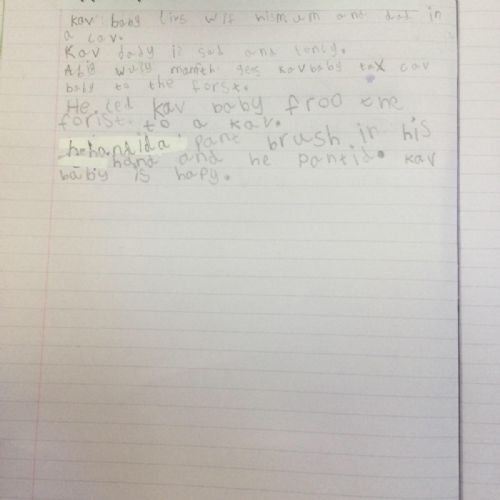 kav baby livs wif hismum and dad in
a cav.
Kav bady is sad and loncy.
A big wuly mamith ges kavbaby tax cav
baby to the forst.
He led kav baby froo the
forist. to a kav.
hehansida pant brush in his
hand and he pantid. kav
baby is hapy.